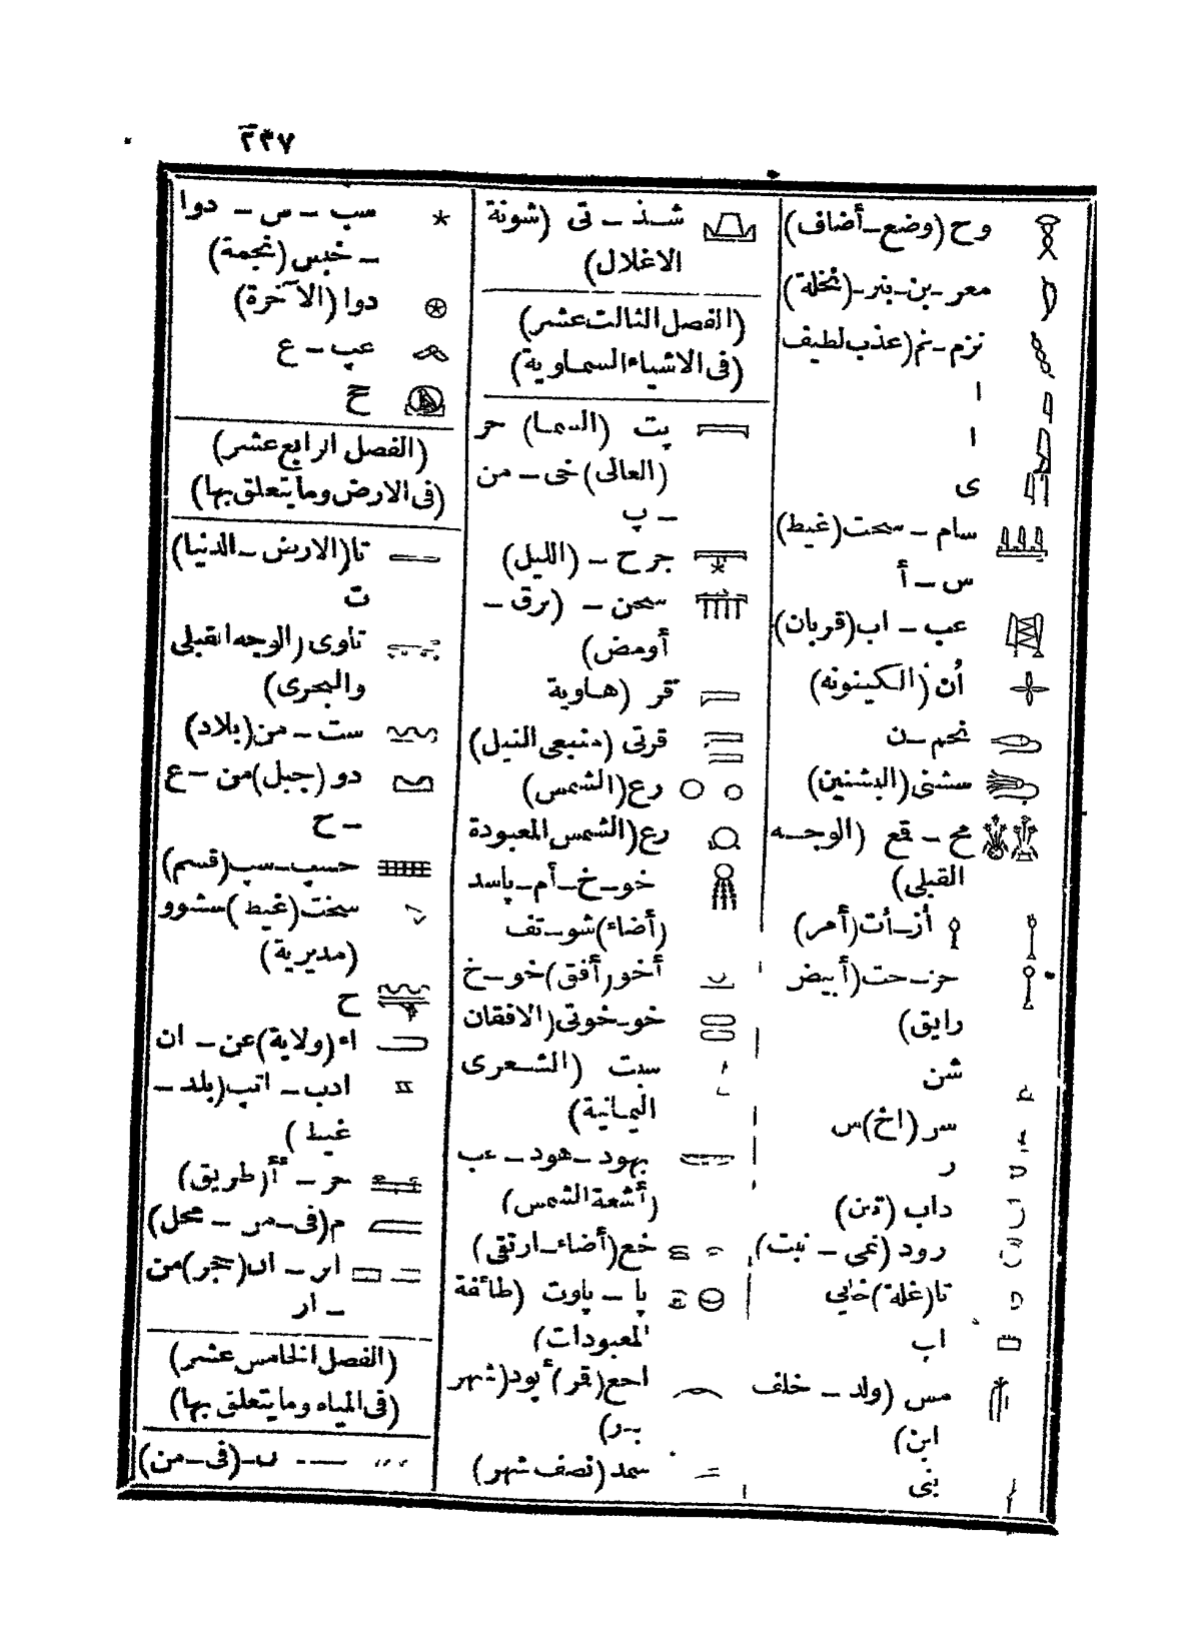 ٢٣٧
وح (وضع-أضاف)
معر-بن-بنر-(نخلة)
نزم-نم(عذب لطيف
ا
ا
ى
سام - سخت(غيط)
س - أ
عب - اب(قربان)
أن (الكينونه)
نحم-ن
سشنى(البشنين)
مح - قع (الوجه
القبلى)
أز-أت(أمر)
حز-حت(أبيض
رايق)
شن
سر (اخ)س
ر
داب (تين)
رود (نمى - نبت)
تا(غلة)خابي
اب
مس (ولد - خلف
ابن)
بنى
شـذ - تى (شونة
الاغلال)
(الفصل الثالث عشر)
(فى الاشياء السماوية)
پت (السما) حر
(العالى)خى - من
- پ
جرح - (الليل)
سحن - (برق -
أومض)
قر (هاوية
قرتى (منبعى النيل)
رع(الشمس)
رع(الشمس المعبودة
خو-خ-أم-پاسد
(أضاء)شو-تف
أخو(أفق)خو-خ
خو-خوتى(الافقان
سبت (الشعرى
اليمانية)
بهود-هود-عب
(أشعة الشمس)
خع(أضاء-ارتقى)
پا - پاوت (طائفة
المعبودات)
احع(قر)أبود(شهر
ب-ر)
سمد(نصف شهر)
سب - س - دوا
- خبس(نجمة)
دوا (الآخرة)
عپ - ع
ح
(الفصل الرابع عشر)
(فى الارض وما يتعلق بها)
تا(الارض-الدنيا)
ت
تاوى(الوجه القبلى
والبحرى)
ست - من(بلاد)
دو (جبل)من-ع
- ح
حسپ-سپ(قسم)
سخت(غيط)سشوو
(مديرية)
ح
اء(ولاية)عن-ان
ادب - اتب(بلد-
غيط)
حر - أ(طريق)
م(فى-مر - محل)
ار - ان(حجر)من
- ار
(الفصل الخامس عشر)
(فى المياه وما يتعلق بها)
ن-(فى-من)